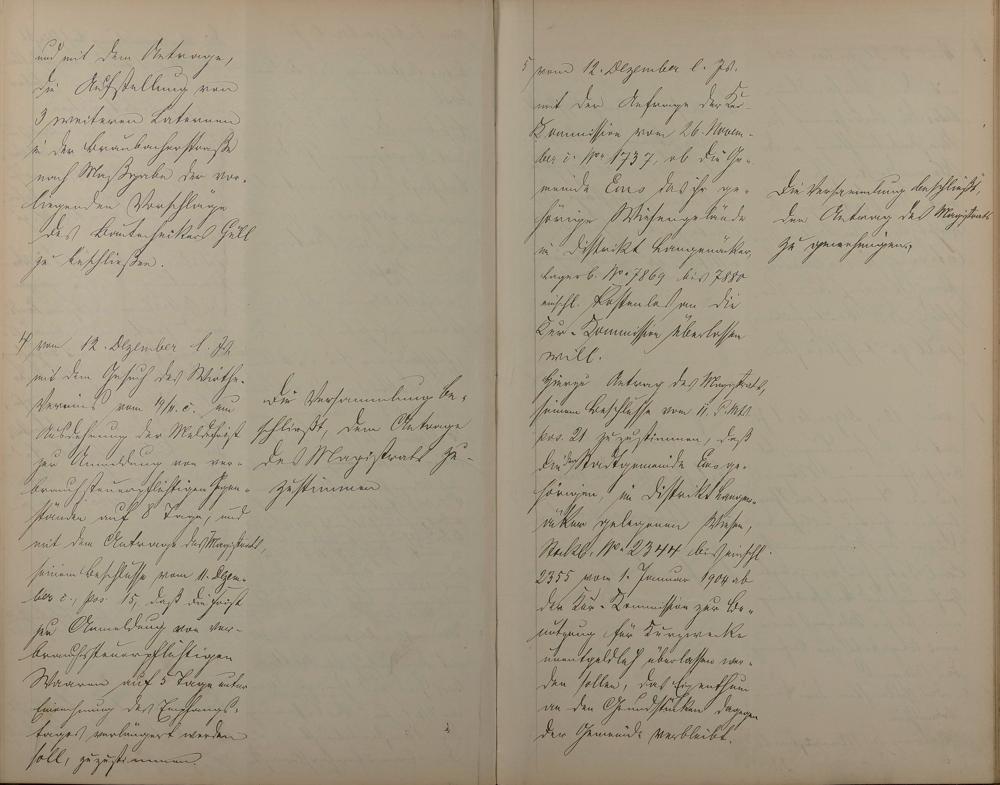 und mit dem Antrage,
die Aufstellung von
3 weiteren Laternen
in der Braubacherstraße
nach Maßgabe der vor-
liegenden Vorschläge
des Bautechnikers Hill
zu beschließen.
4 vom 12. Dezember l. Js.
mit dem Gesuch des Wirthe-
Vereins vom 19/11. c. um
Ausdehnung der Meldefrist
zur Anmeldung von ver-
brauchsteuerpflichtigen Gegen-
ständen auf 8 Tage, und
mit dem Antrage des Magistrats,
seinem Beschlusse vom 11. Dezem-
ber c., pos. 15, daß die Frist
zur Anmeldung von ver-
brauchssteuerpflichtigen
Waaren auf 5 Tage unter
Einrechnung des Empfangs-
tages verlängert werden
soll, zuzustimmen.
Die Versammlung be-
schließt, dem Antrage
des Magistrats zu-
zustimmen
5 vom 12. Dezember l. Js.
mit der Anfrage der Kur-
Kommission vom 26. Novem-
ber c. No. 1737, ob die Ge-
meinde Ems das ihr ge-
hörige Wiesengelände
im Distrikt Langenäcker,
Lagerb. No. 7869 bis 7880
einschl. kostenlos an die
Kur-Kommission überlassen
will.
Hierzu Antrag des Magistrats,
seinem Beschlusse vom 11. d. Mts.
pos. 21 zuzustimmen, daß
die der Stadtgemeinde Ems ge-
hörigen, im Distrikt Langen-
äcker gelegenen Wiesen,
Stockb. No. 2344 bis einschl.
2355 vom 1. Januar 1904 ab
der Kur-Kommission zur Be-
nutzung für Kurzwecke
unentgeldlich überlassen wer-
den sollen, das Eigenthum
an den Grundstücken dagegen
der Gemeinde verbleibt.
Die Versammlung beschließt,
den Antrag des Magistrats
zu genehmigen.